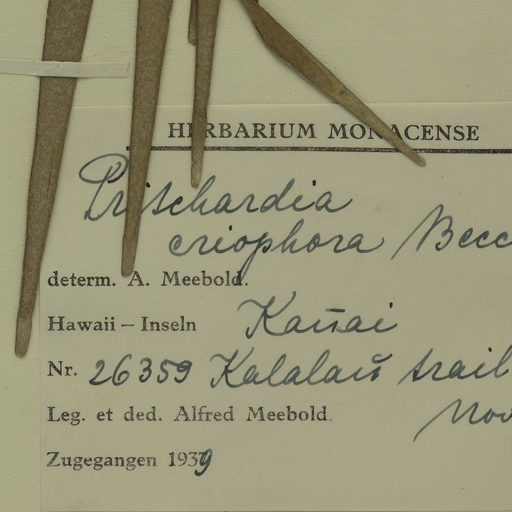 HERBARIUM MONACENSE
Pritschardia
eriophora Becc
determ. A. Meebold.
Hawaii – Inseln Kaūai
Nr. 26359 Kalalaŭ trail
Leg. et ded. Alfred Meebold. Nov
Zugegangen 1939